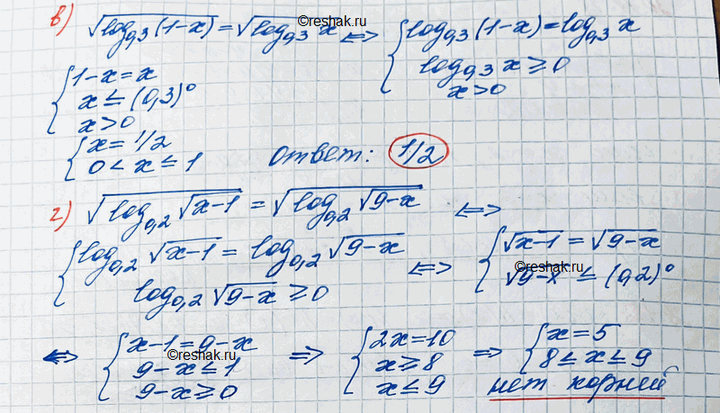 в) √log₀,₃(1-x) = √log₀,₃ x ⟺ { log₀,₃(1-x) = log₀,₃ x
log₀,₃ x ≥ 0
x > 0
{ 1-x = x
x ≤ (0,3)⁰
x > 0
{ x = 1/2
0 < x ≤ 1
ответ: 1/2
г) √log₀,₂ √x-1 = √log₀,₂ √9-x ⟺
{ log₀,₂ √x-1 = log₀,₂ √9-x
log₀,₂ √9-x ≥ 0
⟺ { √x-1 = √9-x
√9-x ≤ (0,2)⁰
⟺ { x-1 = 9-x
9-x ≤ 1
9-x ≥ 0
⟹ { 2x = 10
x ≥ 8
x ≤ 9
⟹ { x = 5
8 ≤ x ≤ 9
нет корней
©reshak.ru
©reshak.ru
©reshak.ru